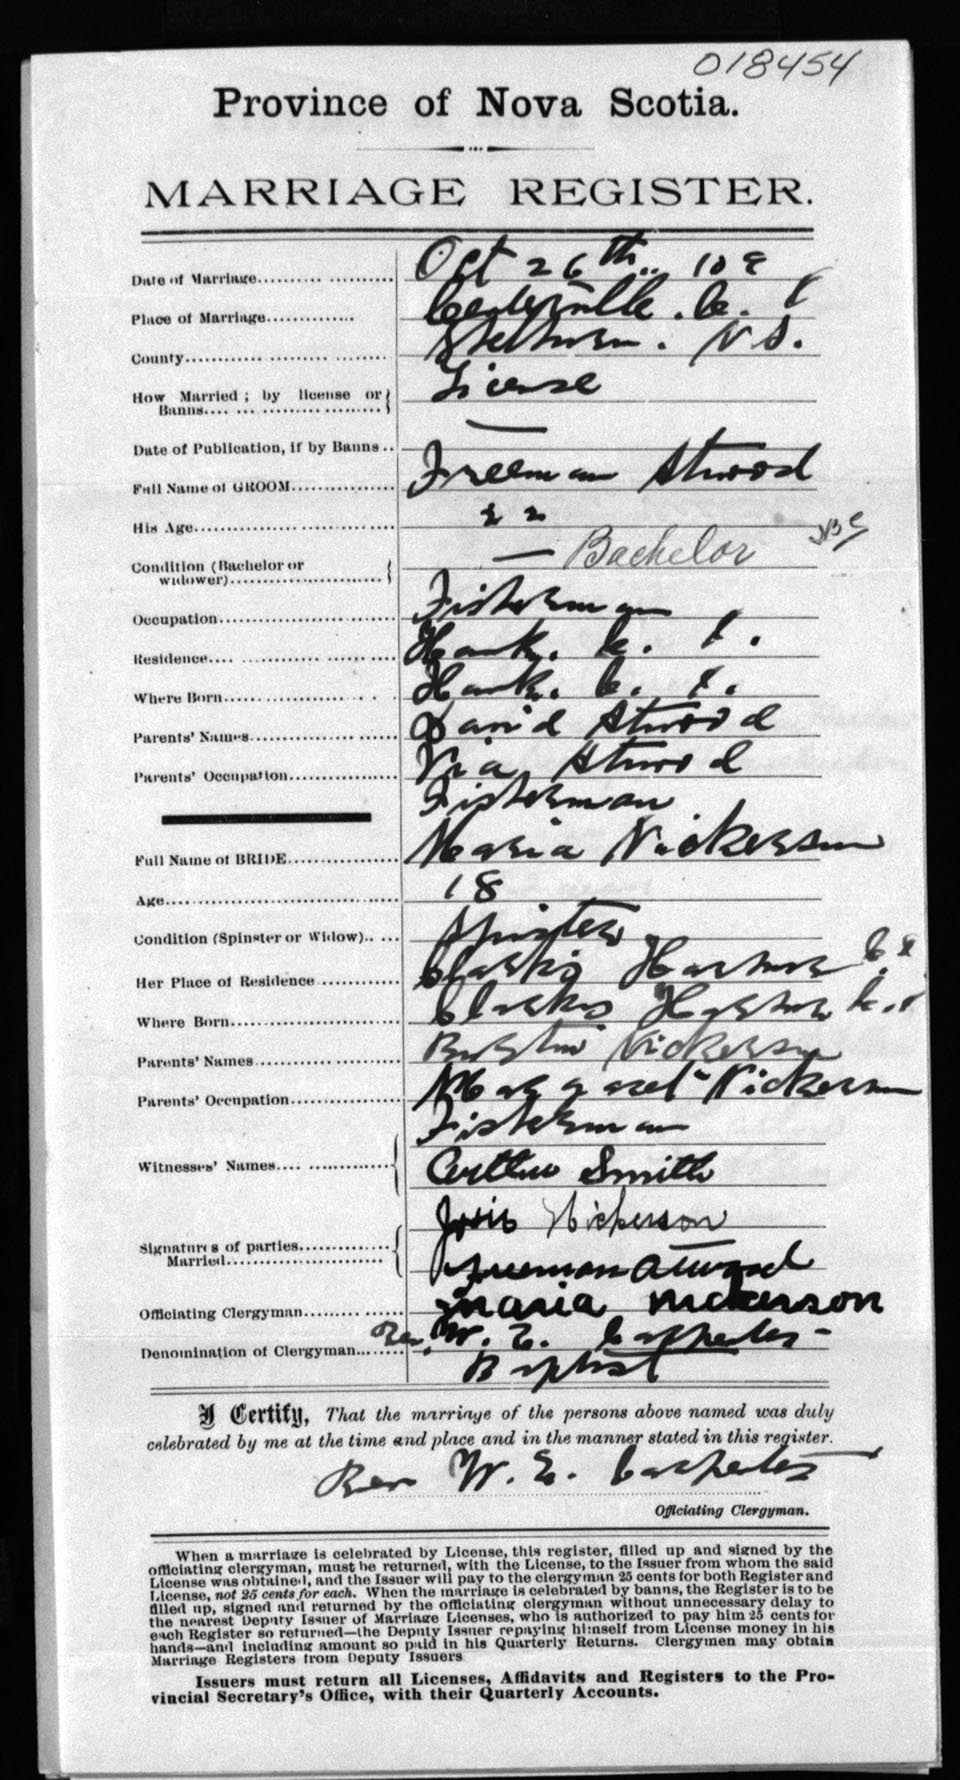 018454
Province of Nova Scotia.
MARRIAGE REGISTER.
Date of Marriage Oct 26th
Place of Marriage Centerville. C. I
County Shelburn. N S.
How Married; by license or Banns License
Date of Publication, if by Banns —
Full Name of GROOM Freeman Atwood
His Age 22
Condition (Bachelor or widower) — Bachelor
Occupation Fisherman
Residence Hawk. C. I.
Where Born Hawk. C. I.
Parents' Names David Atwood
Parents' Occupation Atwood
Fisherman
Full Name of BRIDE Maria Nickerson
Age 18
Condition (Spinster or Widow) Spinster
Her Place of Residence Clarks Harbour C. I
Where Born Clarks Harbour C. I
Parents' Names Nickerson
Parents' Occupation Margaret Nickerson
Fisherman
Witnesses' Names Arthur Smith
Josie Nickerson
Signatures of parties Married Freeman Atwood
Officiating Clergyman Maria Nickerson
Rev. W. E. Carpenter
Denomination of Clergyman Baptist
I Certify, That the marriage of the persons above named was duly
celebrated by me at the time and place and in the manner stated in this register.
Rev W. E. Carpenter
Officiating Clergyman.
When a marriage is celebrated by License, this register, filled up and signed by the
officiating clergyman, must be returned, with the License, to the Issuer from whom the said
License was obtained, and the Issuer will pay to the clergyman 25 cents for both Register and
License, not 25 cents for each. When the marriage is celebrated by banns, the Register is to be
filled up, signed and returned by the officiating clergyman without unnecessary delay to
the nearest Deputy Issuer of Marriage Licenses, who is authorized to pay him 25 cents for
each Register so returned—the Deputy Issuer repaying himself from License money in his
hands—and including amount so paid in his Quarterly Returns. Clergymen may obtain
Marriage Registers from Deputy Issuers
Issuers must return all Licenses, Affidavits and Registers to the Pro-
vincial Secretary's Office, with their Quarterly Accounts.